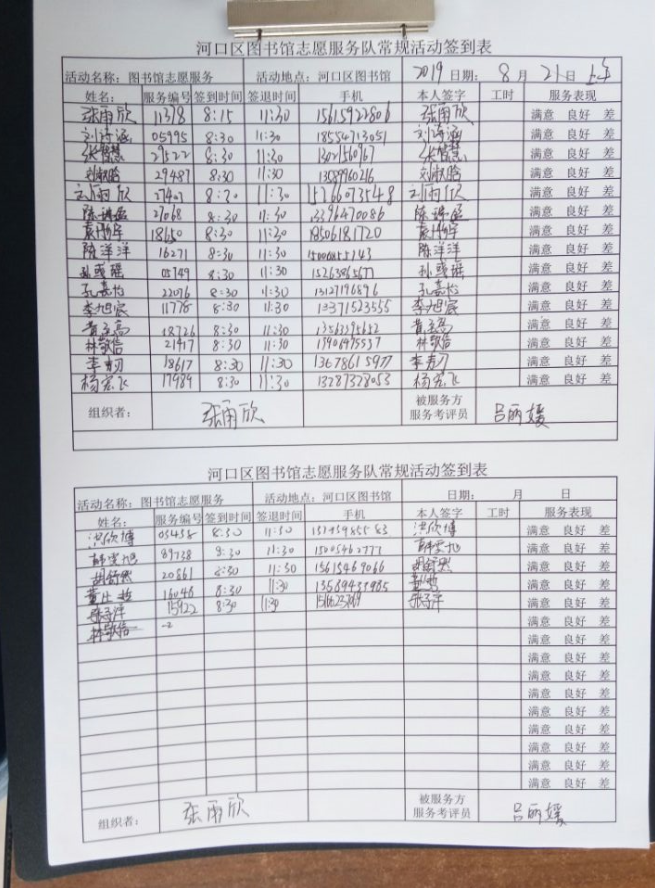 河口区图书馆志愿服务队常规活动签到表
活动名称：图书馆志愿服务 活动地点：河口区图书馆 2019 日期： 8 月 21 日 上午
姓名： 服务编号 签到时间 签退时间 手机 本人签字 工时 服务表现
张雨欣 11378 8:15 11:30 15615922806 张雨欣 满意 良好 差
刘诗涵 05995 8:30 11:30 18554713051 刘诗涵 满意 良好 差
张智慧 29522 8:30 11:30 张智慧 满意 良好 差
29487 8:30 11:30 13089960216 满意 良好 差
刘雨欣 27407 8:30 11:30 15266073548 刘雨欣 满意 良好 差
27068 8:30 11:30 13396470086 满意 良好 差
18650 8:30 11:30 18506181720 满意 良好 差
陈洋洋 16271 8:30 11:30 陈洋洋 满意 良好 差
05749 8:30 11:30 15263865677 满意 良好 差
22076 8:30 11:30 13127196896 满意 良好 差
李旭宸 11778 8:30 11:30 13371523555 李旭宸 满意 良好 差
18726 8:30 11:30 满意 良好 差
林敬信 21417 8:30 11:30 13906475537 林敬信 满意 良好 差
18617 8:30 11:30 13678615977 满意 良好 差
杨宏飞 17989 8:30 11:30 13287328053 杨宏飞 满意 良好 差
组织者： 张雨欣 被服务方
服务考评员 吕丽媛
河口区图书馆志愿服务队常规活动签到表
活动名称：图书馆志愿服务 活动地点：河口区图书馆 日期： 月 日
姓名： 服务编号 签到时间 签退时间 手机 本人签字 工时 服务表现
洪欣博 05458 8:30 11:30 洪欣博 满意 良好 差
89738 8:30 11:30 15005462777 满意 良好 差
胡舒然 20861 8:30 11:30 15615469066 胡舒然 满意 良好 差
16046 8:30 11:30 满意 良好 差
15922 8:30 11:30 满意 良好 差
林敬信 满意 良好 差
满意 良好 差
满意 良好 差
满意 良好 差
满意 良好 差
满意 良好 差
满意 良好 差
满意 良好 差
满意 良好 差
组织者： 张雨欣 被服务方
服务考评员 吕丽媛